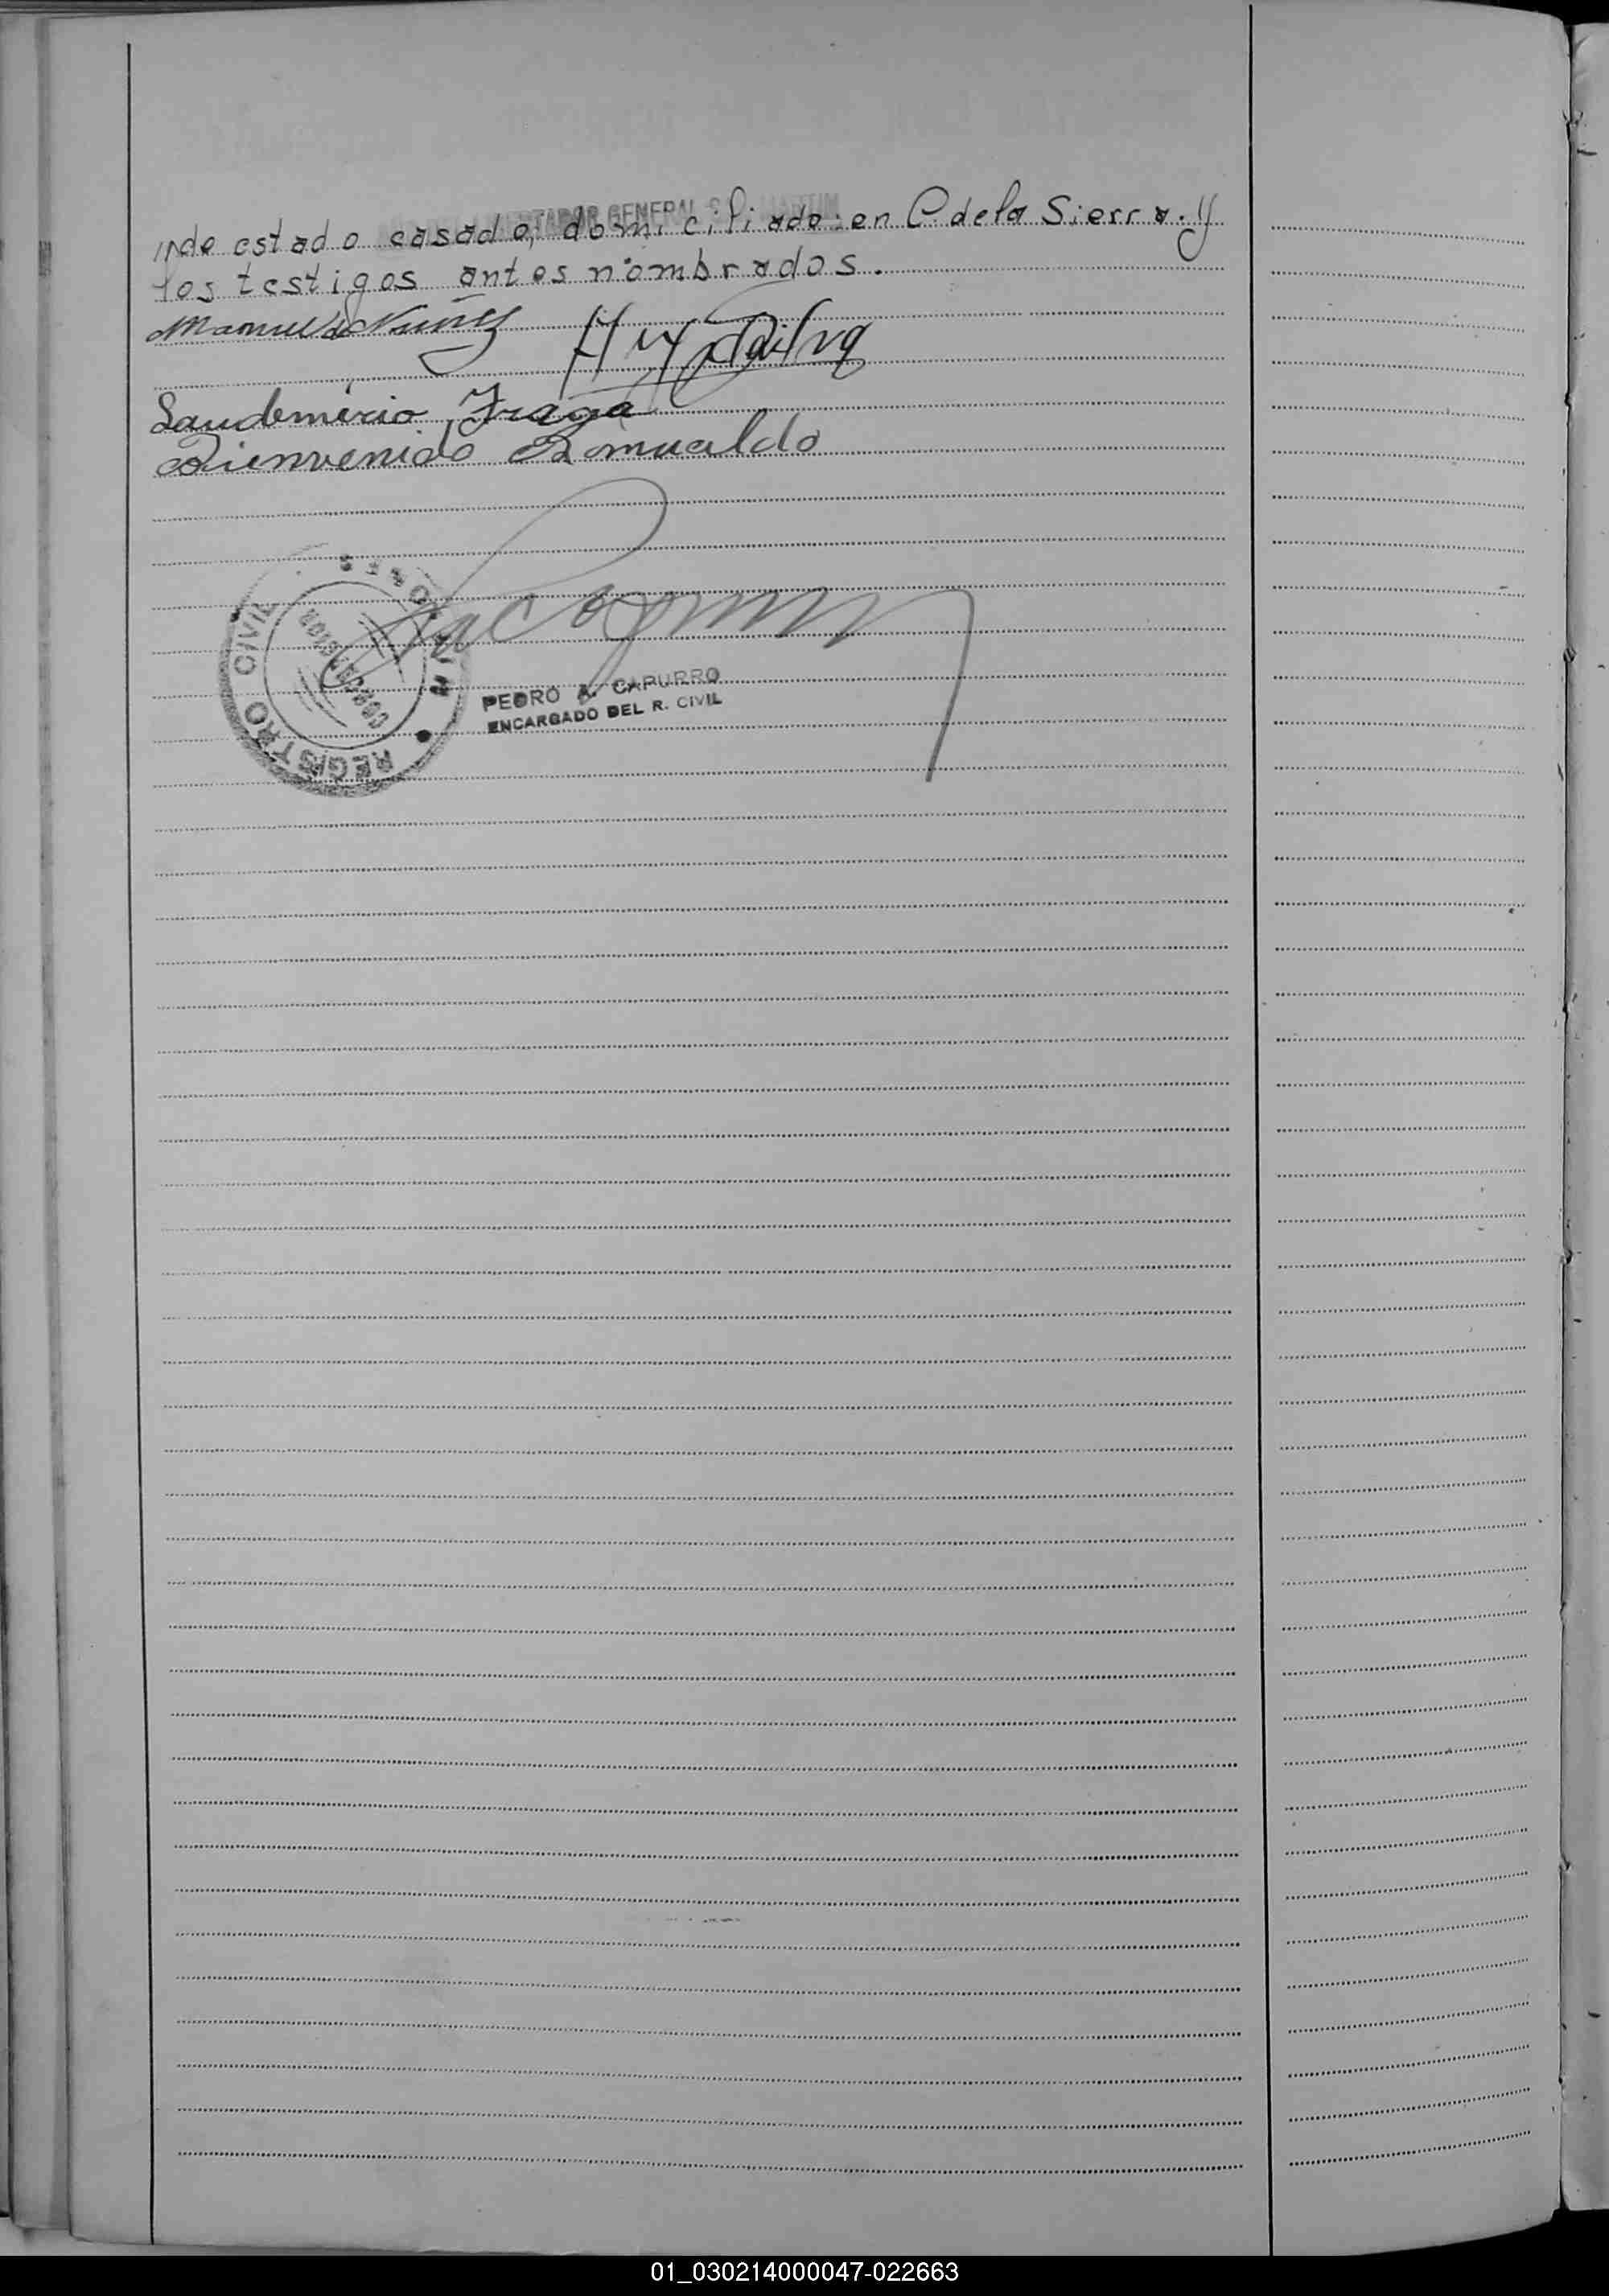 de estado casado, domiciliado: en C. de la Sierra. y
los testigos antes nombrados.
Manuel Nuñez
Laudemirio Fraga
Bienvenido Romualdo
REGISTRO CIVIL
PEDRO A. CAPURRO
ENCARGADO DEL R. CIVIL
01_030214000047-022663